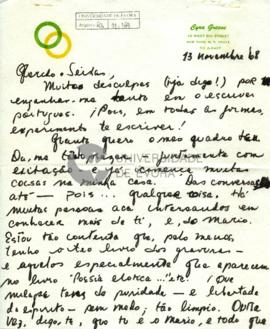 UNIVERSIDADE DE ÉVORA
Cyra Greene
NEW YORK N.Y.
13 novembre 68
Querido Seixas,
Muitas desculpas (oja digo!) por
enganhar-me tanto em o escrever
portugues. ¡Pois, em todas as formas,
experimento te escrever!
Quanto quero o meu quadro
juntamente com
excitação muitas
coisas na minha casa. Das conversas
até — pois ... qualquer coisa, há
muitas pessoas interessados em
conhecer mais de ti, e do Mario.
Estou tão contenta que, pelo menos,
tenho o teo livro das gravuras —
e aquelos especialmente que aparecem
no livro "Possia erotica..." até! ¡Que
tens de puridade — e libertade
do espirito — sem medo; tão limpio. Outra
vez, digo-te, que tu e o Mario, e todo que